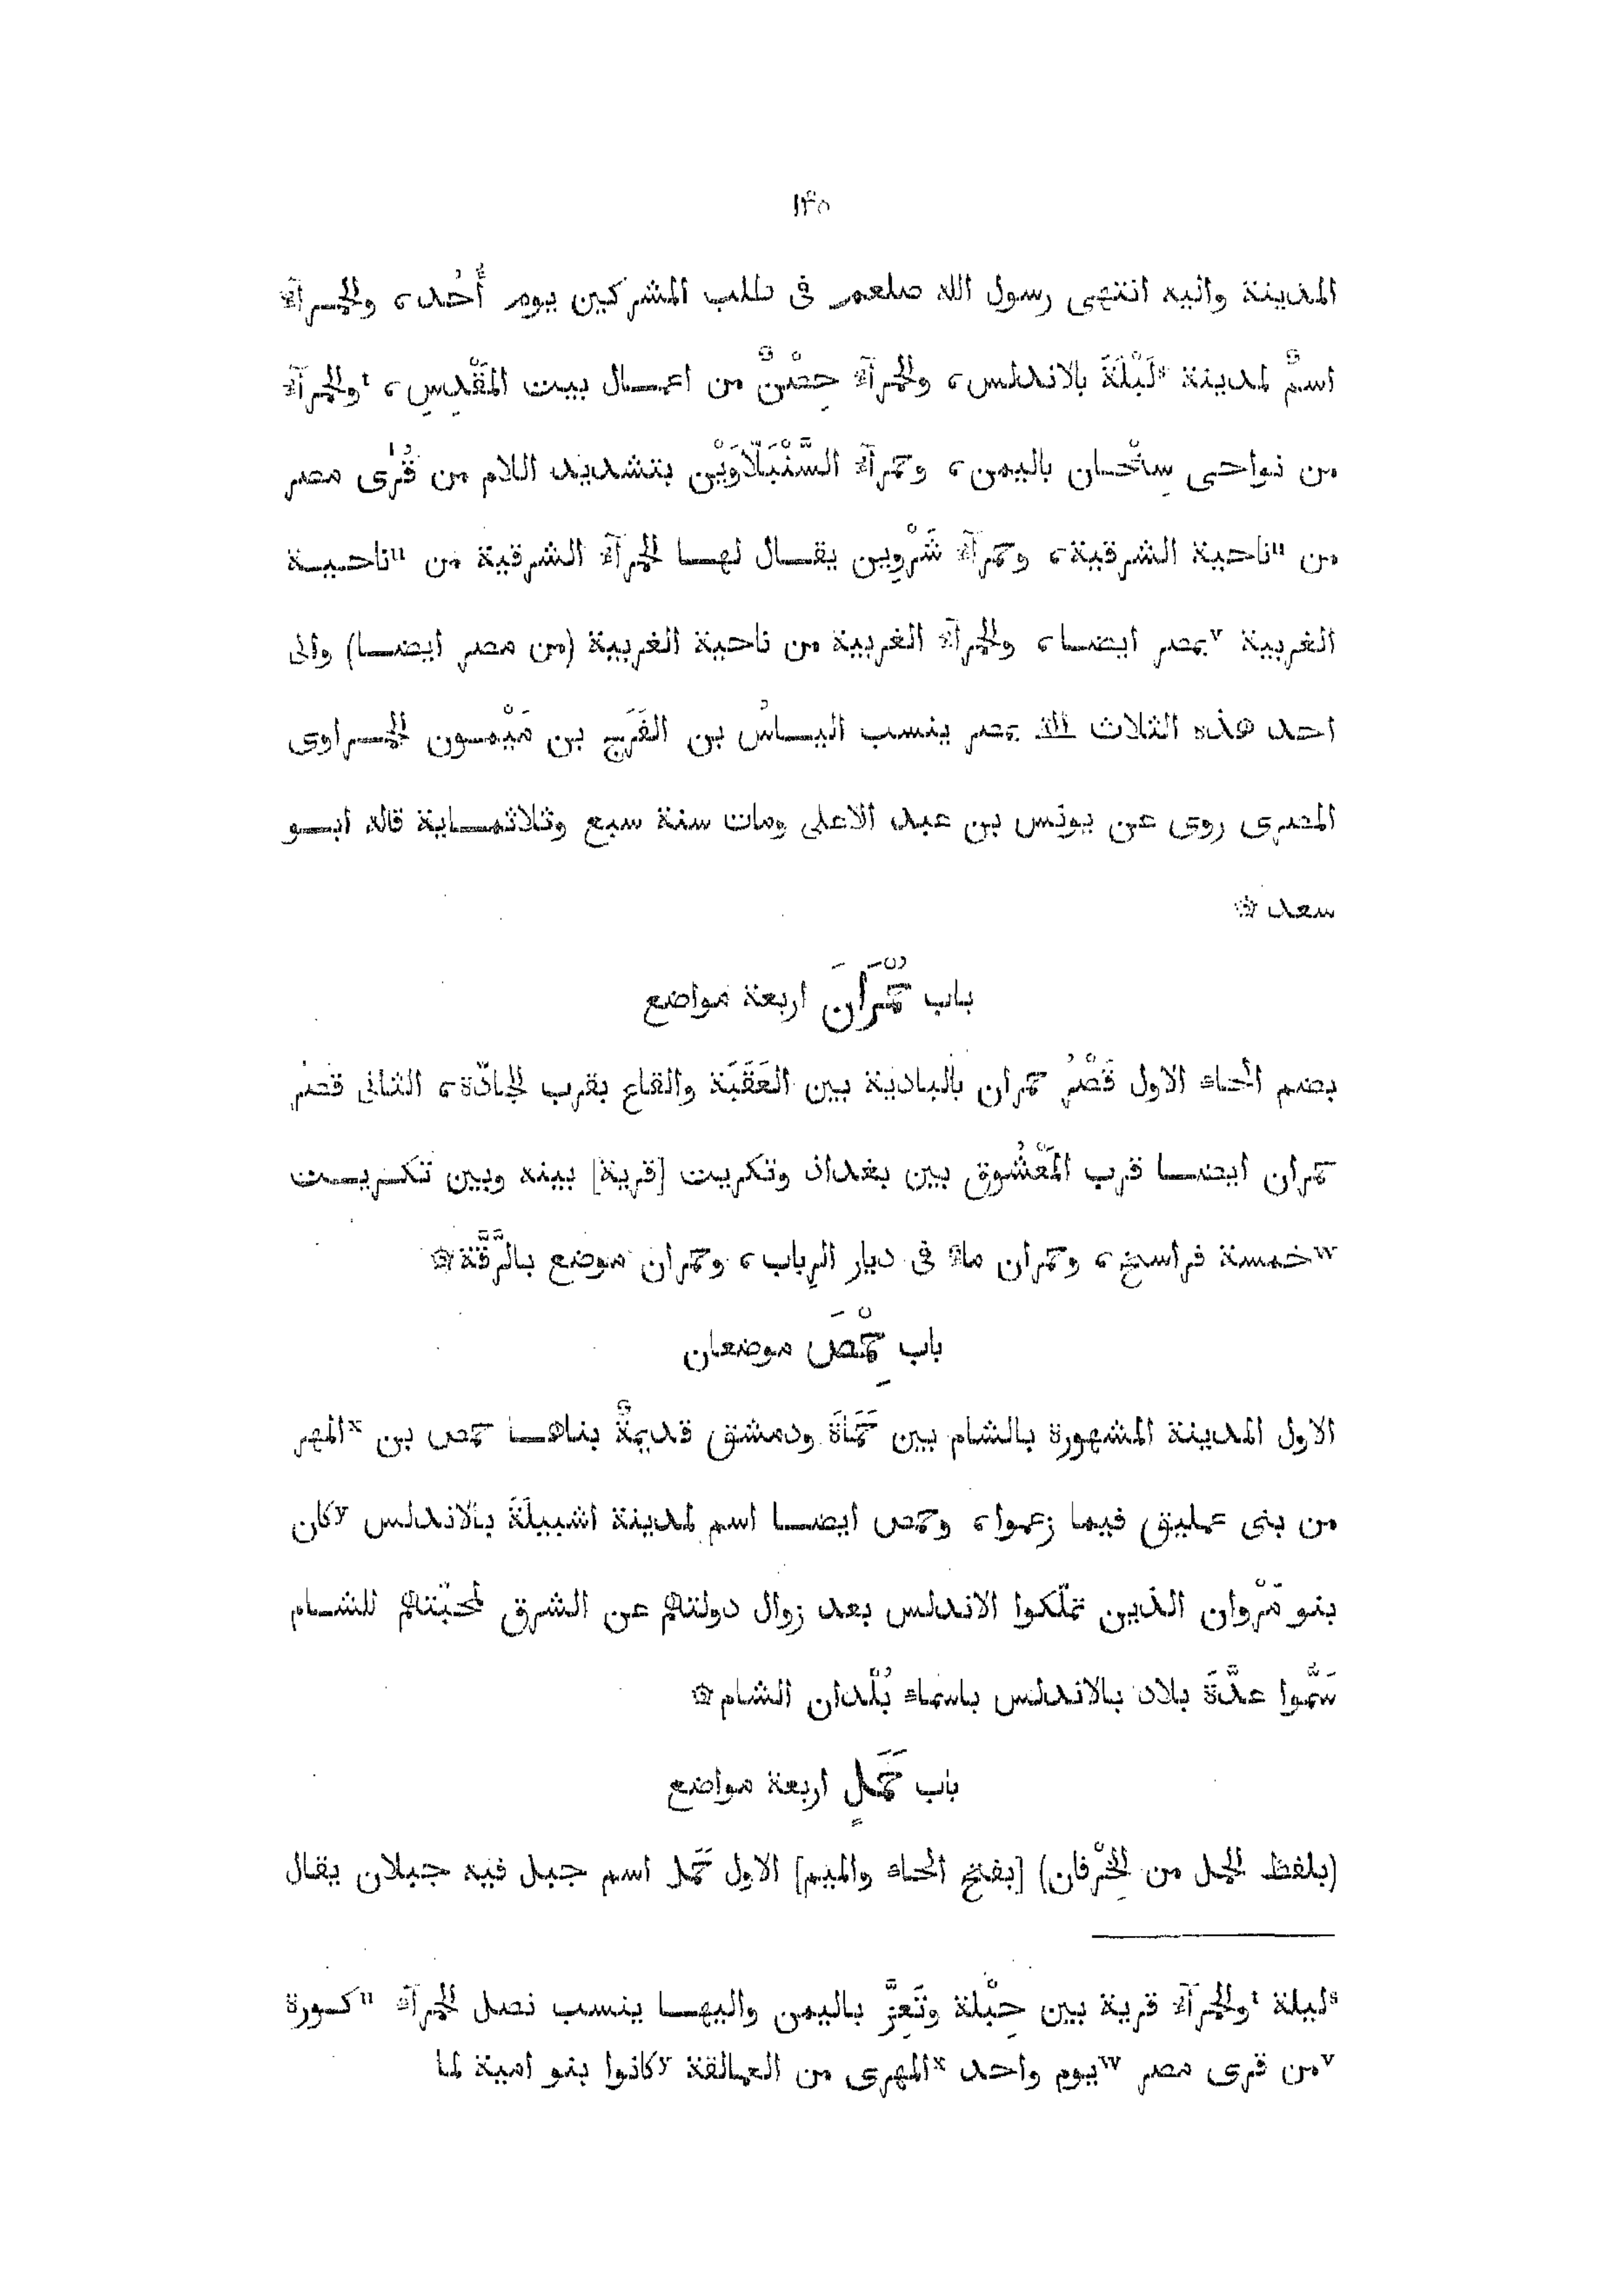 ١٤٥
المدينة واليه انتهى رسول الله صلعم فى طلب المشركين يوم أُحُد، والحمرآء
اسمٌ لمدينة ⁸لَبْلَةَ بالاندلس، والحمرآء حِصْنٌ من اعمال بيت المَقْدِسِ، ᵗوالحمرآء
من نواحى سِنْحان باليمن، وحمرآء السَّنْبَلّاوَيْن بتشديد اللام من قُرى مصر
من ᵘناحية الشرقية، وحمرآء شَرْوِين يقال لها الحمرآء الشرقية من ᵘناحية
الغربية ᵛبمصر ايضا، والحمرآء الغربية من ناحية الغربية (من مصر ايضا) والى
احد هذه الثلاث بمصر ينسب الياسُ بن الفَرَج بن مَيْمون الحمراوى
المصرى روى عن يونس بن عبد الاعلى ومات سنة سبع وثلاثماية قاله ابو
سعد ۞
باب حُمْرَانَ اربعة مواضع
بضم الحاء الاول قَصْرُ حمران بالبادية بين العَقَبَة والقاع بقرب الجادّة، الثانى قصر
حمران ايضا قرب المَعْشُوق بين بغداذ وتكريت [قرية] بينه وبين تكريت
ʷخمسة فراسخ، وحمران مآء فى ديار الرِباب، وحمران موضع بالرَّقَّة۞
باب حِمْصَ موضعان
الاول المدينة المشهورة بالشام بين حَمَاةَ ودمشق قديمةٌ بناها حمص بن ˣالمهر
من بنى عمليق فيما زعموا، وحمص ايضا اسم لمدينة اشبيلَةَ بالاندلس ʸكان
بنو مَرْوان الذين تملّكوا الاندلس بعد زوال دولتهم عن الشرق لمحبّتهم للشام
سَمَّوا عدَّةَ بلاد بالاندلس باسماء بُلْدان الشام۞
باب حَمَلٍ اربعة مواضع
(بلفظ الحمل من الخِرْفان) [بفتح الحاء والميم] الاول حَمَل اسم جبل فيه جبلان يقال
ˢلبيلة ᵗوالحمرآء قرية بين جِبْلة وتَعِزَّ باليمن واليها ينسب نصل الحمرآء ᵘكورة
ᵛمن قرى مصر ʷيوم واحد ˣالمهرى من العمالقة ʸكانوا بنو امية لما